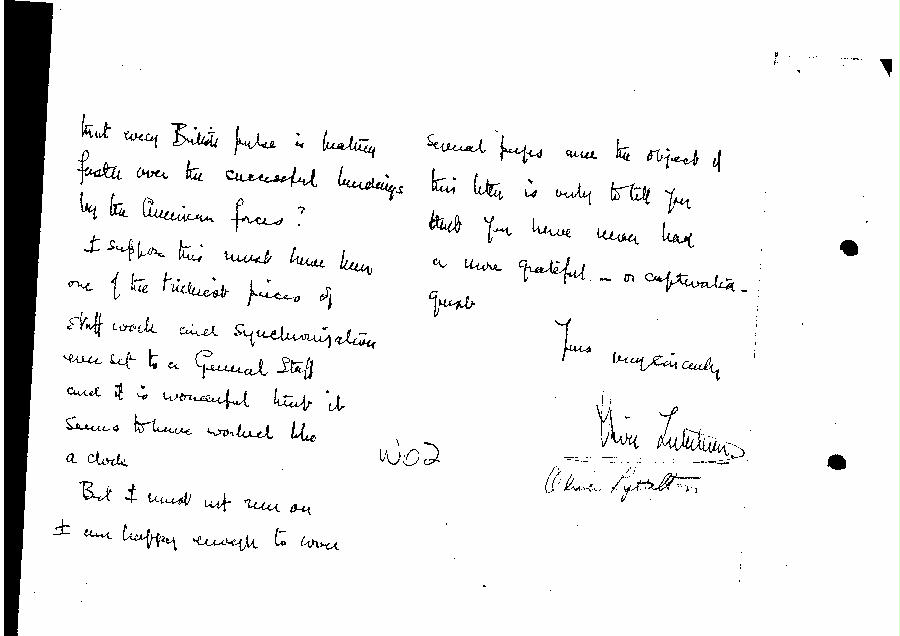 that every British pulse is beating
faster over the successful landings
by the American forces?
I suppose this must have been
one of the trickiest pieces of
Staff work and Synchronization
ever set to a General Staff
and it is wonderful that it
seems to have worked like
a clock
But I must not run on
I am happy enough to cover
several pages since the object of
this letter is only to tell you
that you have never had
a more grateful – or captivated –
guest
Yours very sincerely
Oliver Lyttelton
Oliver Lyttelton
WO2